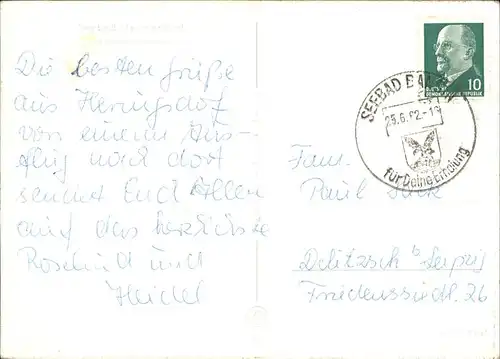 Die besten Grüße
aus Heringsdorf
von einem Aus-
flug nach dort
sendet Euch Allen
auf das herzlichste
Roselind und
Heidel
10
DEUTSCHE
DEMOKRATISCHE REPUBLIK
SEEBAD BAN
25.6.62-1
für Deine Erholung
Fam.
Paul
Delitzsch b Leipzig
Friedenssiedl. 26